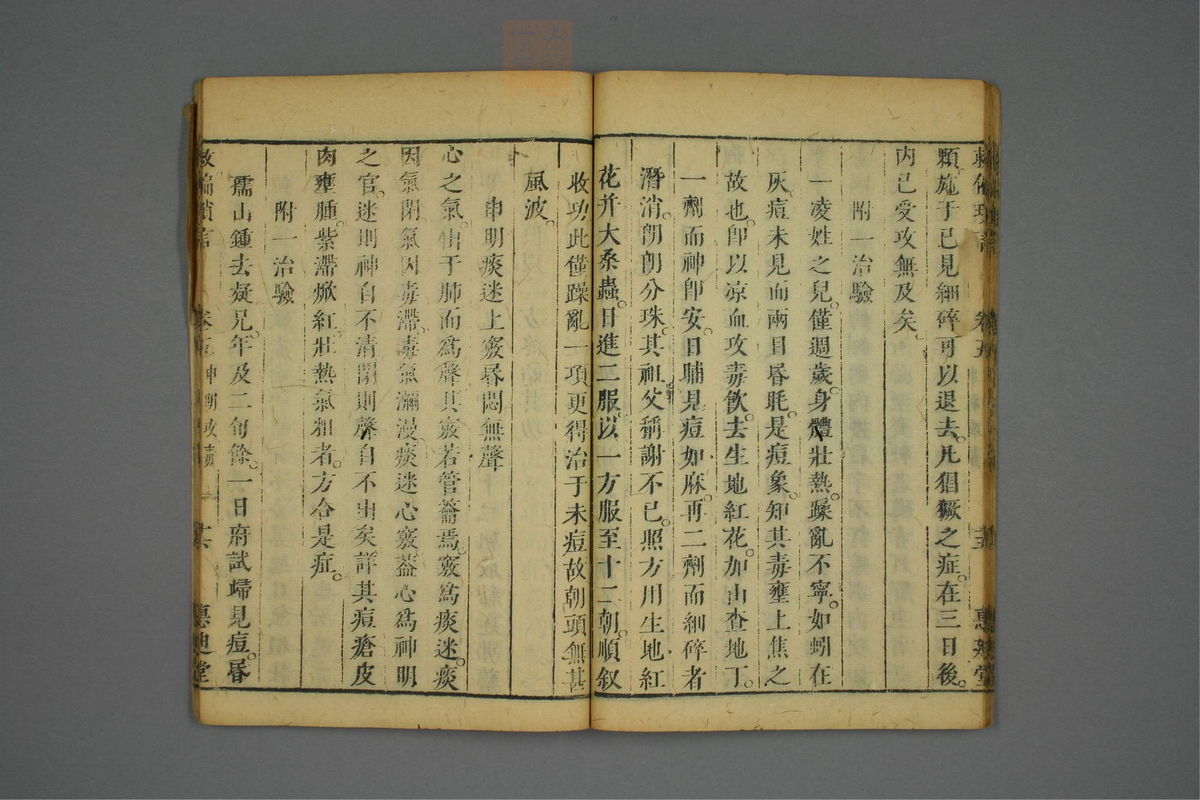 顆施于已見細碎可以退去凡猖獗之症在三日後
内已受攻無及矣
附一治驗
一凌姓之兒僅週歲身體壯熱躁亂不寧如蚓在
灰痘未見而兩目昏眊是痘象知其毒壅上焦之
故也卽以凉血攻毒飲去生地紅花加山查地丁
一劑而神卽安日晡見痘如麻再二劑而細碎者
潛消朗朗分珠其祖父稱謝不已照方用生地紅
花并大桑蟲日進二服以一方服至十二朝順叙
收功此僅躁亂一項更得治于未痘故朝頭無甚
風波
申明痰迷上竅昏悶無聲
心之氣出于肺而爲聲其竅若管籥焉竅爲痰迷痰
因氣閉氣因毒滯毒氣瀰漫痰迷心竅蓋心爲神明
之官迷則神自不清閉則聲自不出矣詳其痘瘡皮
肉壅腫紫滯焮紅壯熱氣粗者方合是症
附一治驗
孺山鍾去疑兄年及二旬餘一日府試歸見痘昏
卷五 申明攻毒 十六 惠迪堂